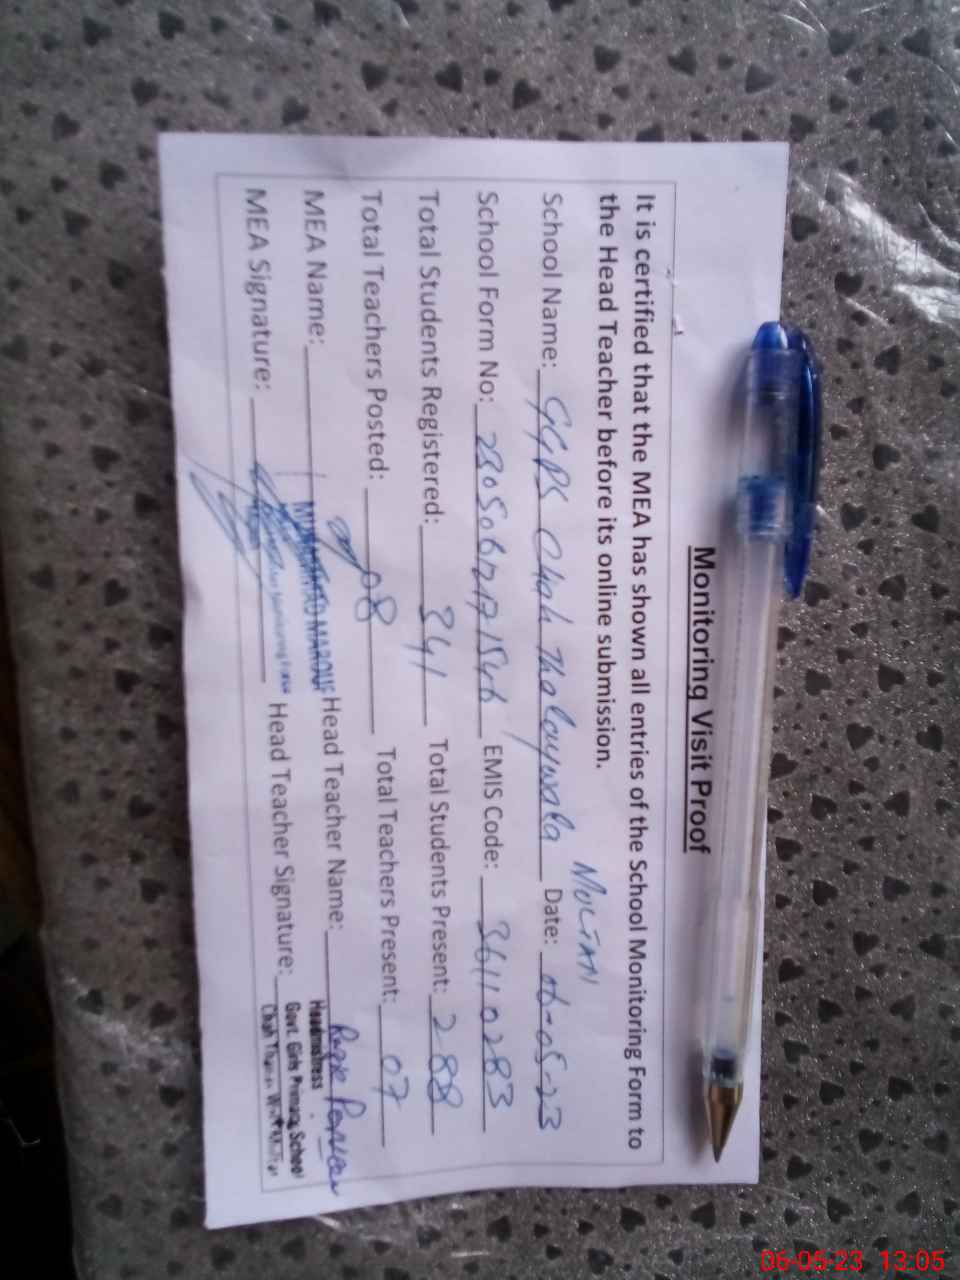 Monitoring Visit Proof
It is certified that the MEA has shown all entries of the School Monitoring Form to
the Head Teacher before its online submission.
MULTAN
School Name: GGPS Chah Thalaywala Date: 06-05-23
School Form No: EMIS Code: 36110283
Total Students Registered: 341 Total Students Present: 288
Total Teachers Posted: 08 Total Teachers Present: 07
MEA Name: MUHAMMAD MAROUF Head Teacher Name:
MEA Signature: Head Teacher Signature:
Headmistress
Govt. Girls Primary School
Chah
06-05-23 13:05